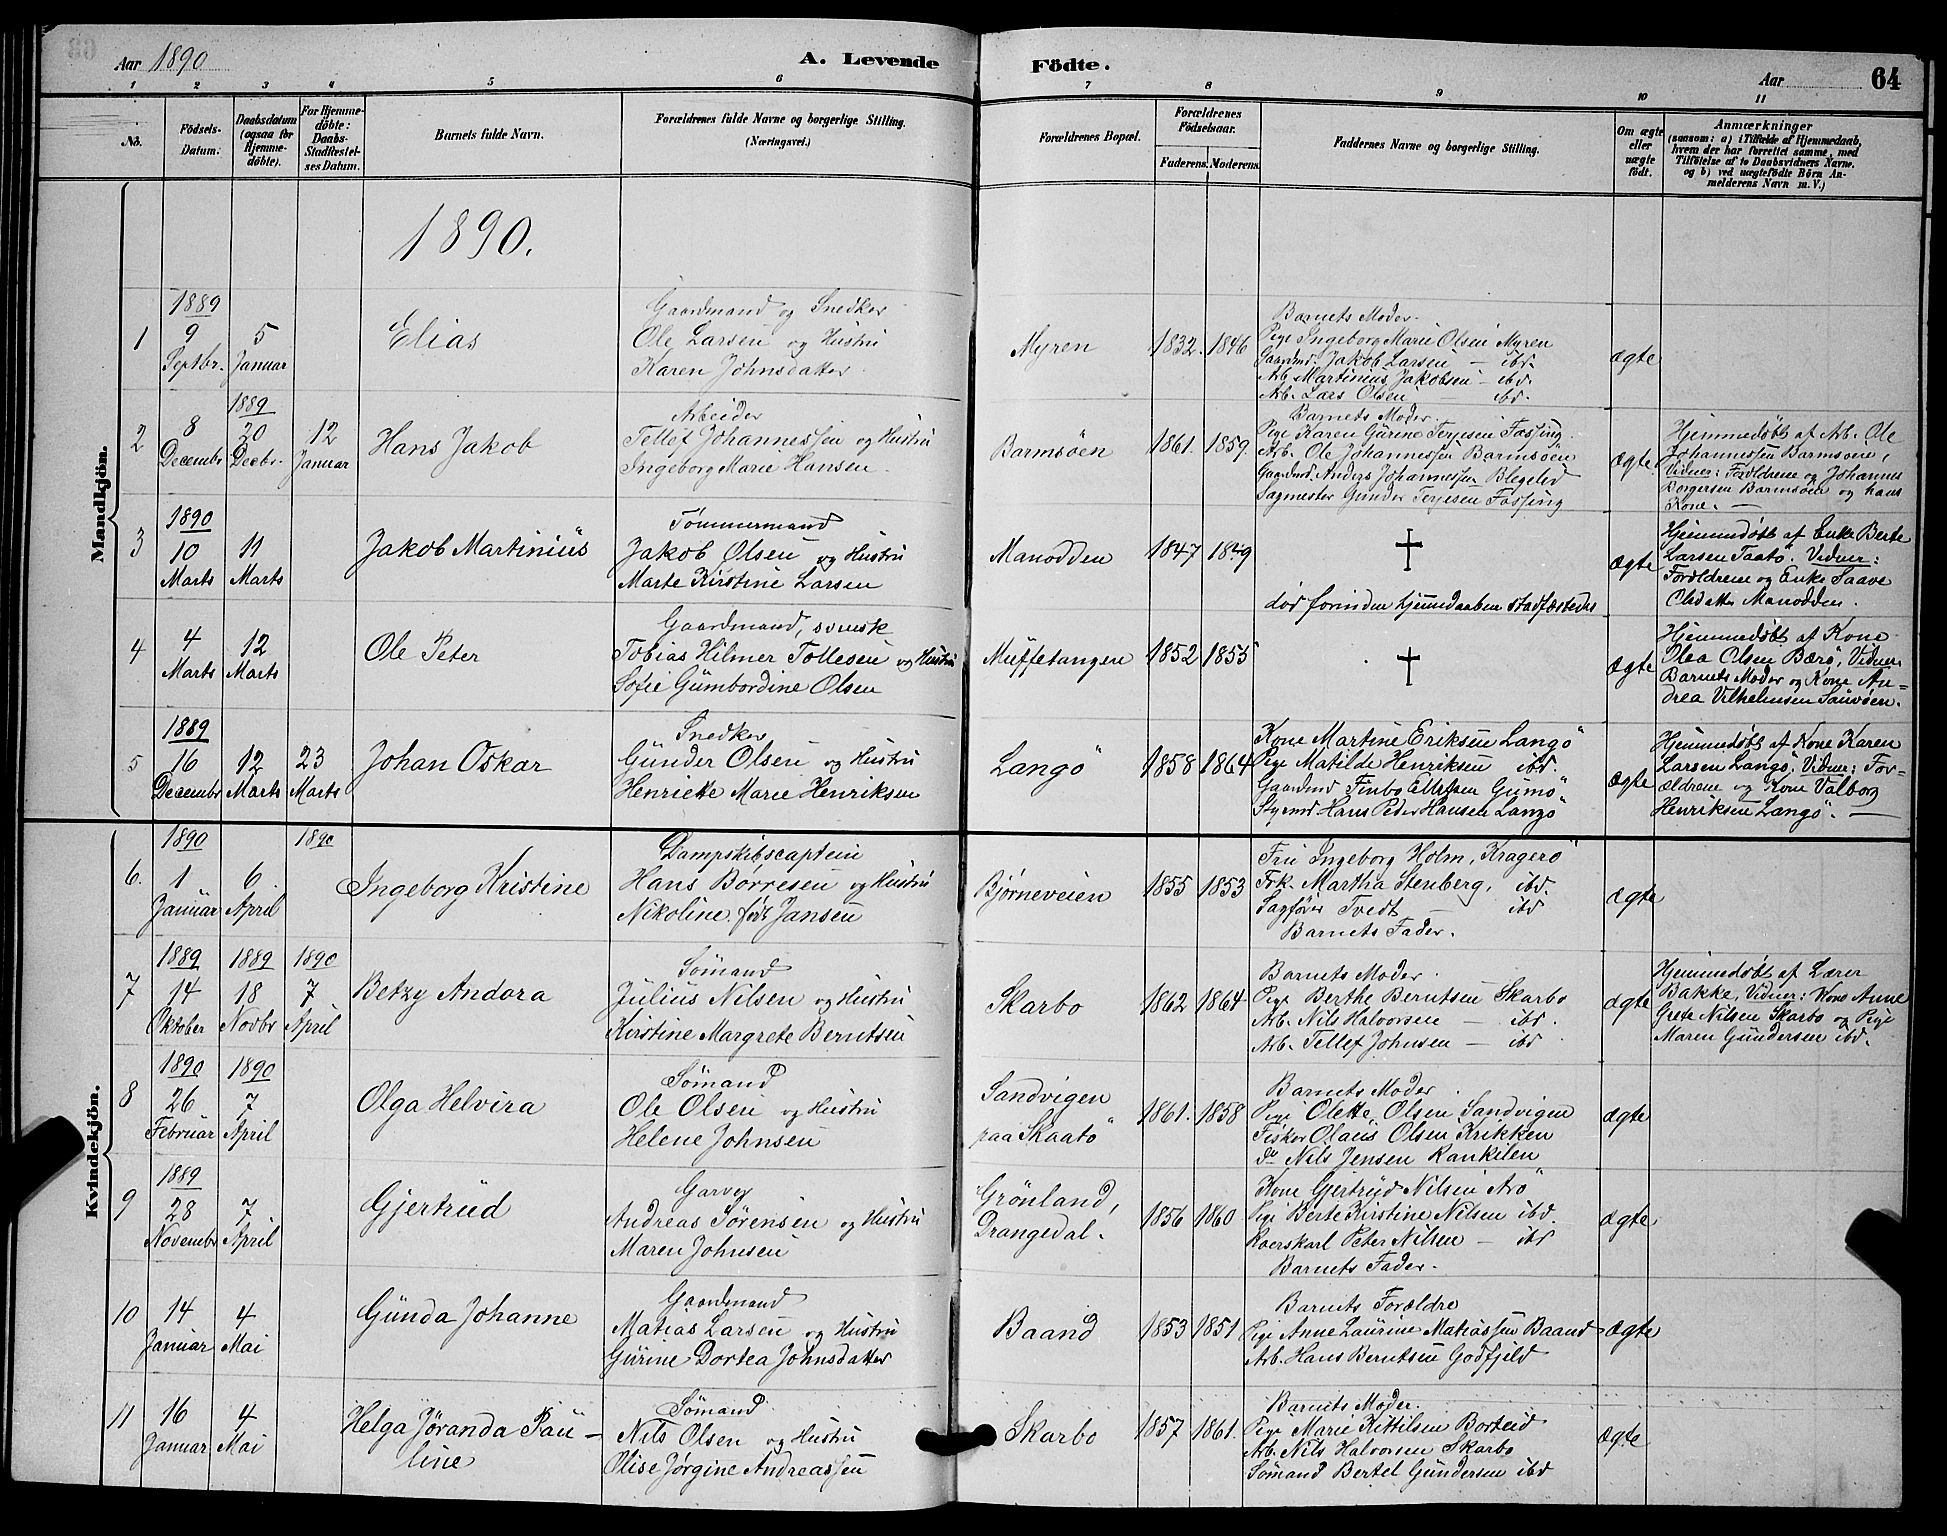 Aar 1890
A. Levende Födte.
Aar
64
1 2 3 4 5 6 7 8 9 10 11
No.
Födsels-
Datum.
Daabsdatum
(ogsaa for
Hjemme-
döbte).
For Hjemme-
döbte:
Daabs-
Stadfæstel-
ses Datum.
Barnets fulde Navn.
Forældrenes fulde Navne og borgerlige Stilling.
(Næringsvei.)
Forældrenes Bopæl.
Forældrenes
Födselsaar.
Faderens.
Moderens.
Faddernes Navne og borgerlige Stilling.
Om ægte
eller
uægte
födt.
Anmærkninger
(saasom: a) i Tilfælde af Hjemmedaab,
hvem der har forrettet samme, med
Tilföielse af to Daabsvidners Navne.
og b) ved uægtefödte Börn An-
melderens Navn m. V.)
Mandkjön.
1890.
1
1889
9
Septbr.
5
Januar
Elias
Gaardmand og Snedker
Ole Larsen og Hustru
Karen Johnsdatter
Myren
1832. 1846
Barnets Moder.
Pige Ingeborg Marie Olsen Myren
Gaardmd. Jakob Larsen — ibd.
Arb. Martinius Jakobsen — ibd.
Arb. Lars Olsen — ibd.
ægte
2
8
Decembr
1889
20
Decbr.
12
Januar
Hans Jakob
Arbeider
Tellef Johannessen og Hustru
Ingeborg Marie Hansen.
Barmsöen
1861. 1859.
Barnets Moder.
Pige Karen Gurine Terjesen Fossing.
Arb. Ole Johannessen Barmsöen
Gaardmd. Anders Johannessen Blegelid
Sagmester Gunder Terjesen Fossing
ægte
Hjemmedöbt af Arb. Ole
Johannessen Barmsöen,
Vidner: Forældrene og Johannes
Borgersen Barmsöen og hans
Kone. —
3
1890
10
Marts
11
Marts
Jakob Martinius
Tömmermand
Jakob Olsen og Hustru
Marte Kirstine Larsen
Manodden
1847 1849
†
död forinden hjemmedaaben stadfæstedes
ægte
Hjemmdöbt af Enke Berte
Larsen Taatö. Vidner:
Forældrene og Enke Saave
Olsdatter Manodden.
4
4
Marts
12
Marts
Ole Peter
Gaardmand, svensk
Tobias Hilmer Tollesen og Hustru
Sofie Gumbordine Olsen
Muffetangen
1852 1855
†
ægte
Hjemmedöbt af Kone
Olea Olsen Bærö, Vidner.
Barnets Moder og Kone An=
drea Vilhelmsen Sauöen.
5
1889
16
Decembr
12
Marts
23
Marts
Johan Oskar
Snedker
Gunder Olsen og Hustru
Henriette Marie Henriksen
Langö
1858 1864
Kone Martine Eriksen Langö
Pige Matilde Henriksen ibd.
Gaardmd Finbo Ellefsen Gumö
Stymd. Hans Peder Hansen Langö
ægte
Hjemmedöbt af Kone Karen
Larsen Langö, Vidner: For-
ældrene og Kone Valborg
Henriksen Langö. —
Kvindekjön.
6.
1890
1
Januar
6
April
1890
Ingeborg Kristine
Dampskibscaptein
Hans Börresen og Hustru
Nikoline födt Jansen
Bjørneveien
1855 1853
Fru Ingeborg Holm, Kragerö
Frk. Martha Stenberg, ibd.
Sagförer Tvedt — ibd
Barnets Fader.
ægte
7
1889
14
Oktober
1889
18
Novbr
1890
7
April
Betzy Andora
Sömand
Julius Nilsen og Hustru
Kirstine Margrete Berntsen
Skarbo
1862 1864
Barnets Moder.
Pige Berthe Berntsen Skarbo
Arb. Nils Halvorsen — ibd.
Arb. Tellef Johnsen — ibd
ægte
Hjemmedöbt af Lærer
Bakke, Vidner: Kone Anne
Grete Nilsen Skarbo og Pige
Maren Gundersen ibd.
8
1890
26
Februar
1890
7
April
Olga Helvira
Sömand
Ole Olsen og Hustru
Helene Johnsen
Sandvigen
paa Skaatö
1861. 1858
Barnets Moder.
Pige Olette Olsen Sandvigen
Fisker Olaus Olsen Krikken
Do Nils Jensen Rankilen
ægte
9
1889
28
Novembr
7
April
Gjertrud
Garver
Andreas Sörensen og Hustru
Maren Johnsen
Grönland,
Drangedal.
1856 1860
Kone Gjertryd Nilsen Arö
Pige Berte Kirstine Nilsen ibd.
Roerskarl Peter Nilsen — ibd
Barnets Fader.
ægte.
10
14
Januar
4
Mai
Gunda Johanne
Gaardmand
Matias Larsen og Hustru
Gurine Dortea Johnsdatter
Baand
1853 1851
Barnets Forældre
Pige Anne Laurine Matiassen Baand
Arb. Hans Berntsen Godfjeld
ægte
11
16
Januar
4
Mai
Helga Jöranda Pau-
line
Sömand
Nils Olsen og Hustru
Olise Jörgine Andreassen
Skarbo
1857 1861.
Barnets Moder.
Pige Marie Kittilsen Borteid
Arb. Nils Halvorsen Skarbo
Sömand Bertel Gundersen ibd
ægte